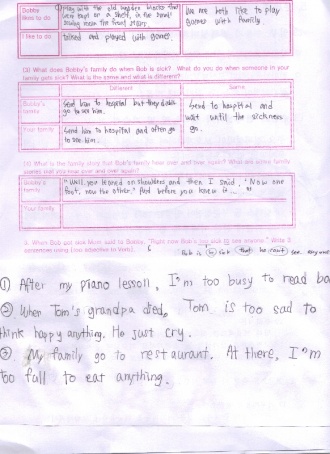 Bobby likes to do.
Play with the old wooden blocks that
were kept on a shelf, in the small
sewing room the front stairs
We are both like to play
games with family.
I like to do
talked and played with games.
(3) What does Bobby's family do when Bob is sick? What do you do when someone in your
family gets sick? What is the same and what is different?
Different
Same
Bobby's
family
Send him to hospital but they didn't
go to see him.
Send to hospital and
wait until the sickness
go.
Your family
Send him to hospital and often go
to see him.
(4) What is the family story that Bob's family hear over and over again? What are some family
stories that you hear over and over again?
Bobby's
family
"Well, you leaned on shoulders and then I said, 'Now one
foot, now the other.' And before you knew it ... "
Your family
When Bob got sick Mom said to Bobby, "Right now Bob's too sick to see anyone." Write 3
sentences using (too adjective to Verb).
① After my piano lesson, I'm too busy to read
② When Tom's grandpa died, Tom is too sad to
think happy anything. He just cry.
③ My family go to restaurant. At there, I'm
too full to eat anything.